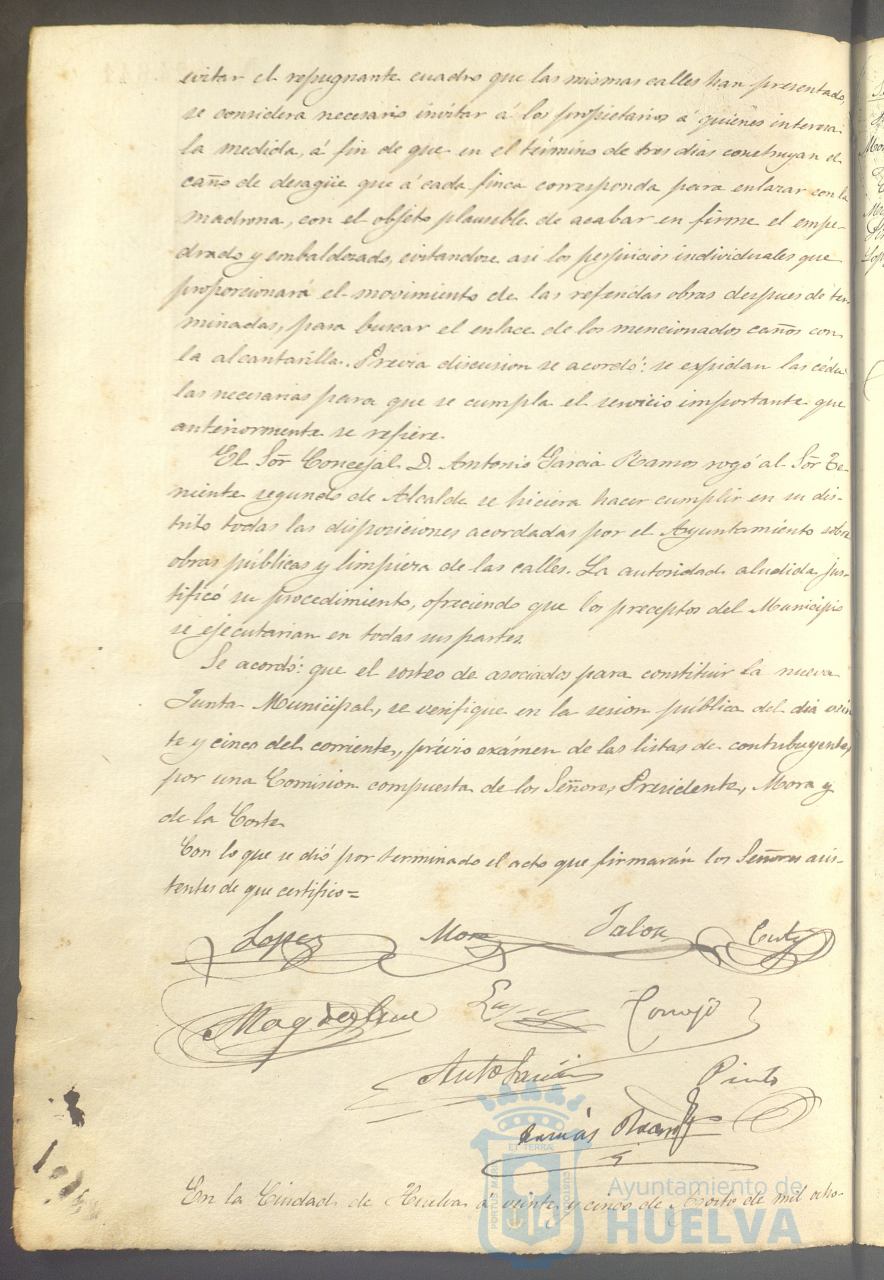 evitar el repugnante cuadro que las mismas calles han presentado,
se considera necesario invitar á los propietarios á quienes interesa
la medida, á fin de que en el término de tres dias construyan el
caño de desagüe que á cada finca corresponda para enlazar con la
madrona, con el objeto plausible de acabar en firme el empe-
drado y embaldosado, evitandose asi los perjuicios individuales que
proporcionará el movimiento de las referidas obras despues de ter-
minadas, para buscar el enlace de los mencionados caños con
la alcantarilla. Previa discusion se acordó: se expidan las cédu-
las necesarias para que se cumpla el servicio importante que
anteriormente se refiere.
El Sor Concejal D. Antonio Garcia Ramos rogó al Sor Te-
niente segundo de Alcalde se hiciera hacer cumplir en su dis-
trito todas las disposiciones acordadas por el Ayuntamiento sobre
obras públicas y limpieza de las calles. La autoridad aludida jus-
tificó su procedimiento, ofreciendo que los preceptos del Municipio
se ejecutarian en todas sus partes.
Se acordó: que el sorteo de asociados para constituir la nueva
Junta Municipal, se verifique en la sesion pública del dia vein-
te y cinco del corriente, prévio exámen de las listas de contribuyentes,
por una Comision compuesta de los Señores Presidente, Mora y
de la Corte.
Con lo que se dió por terminado el acto que firmarán los Señores asis-
tentes de que certifico=
Lopez Mora Corte
Garcia Pinto
En la Ciudad de Huelva a veinte y cinco de Agosto de mil ocho-
PORTUS MARIS ET TERRAE CUSTODIA
Ayuntamiento de
HUELVA